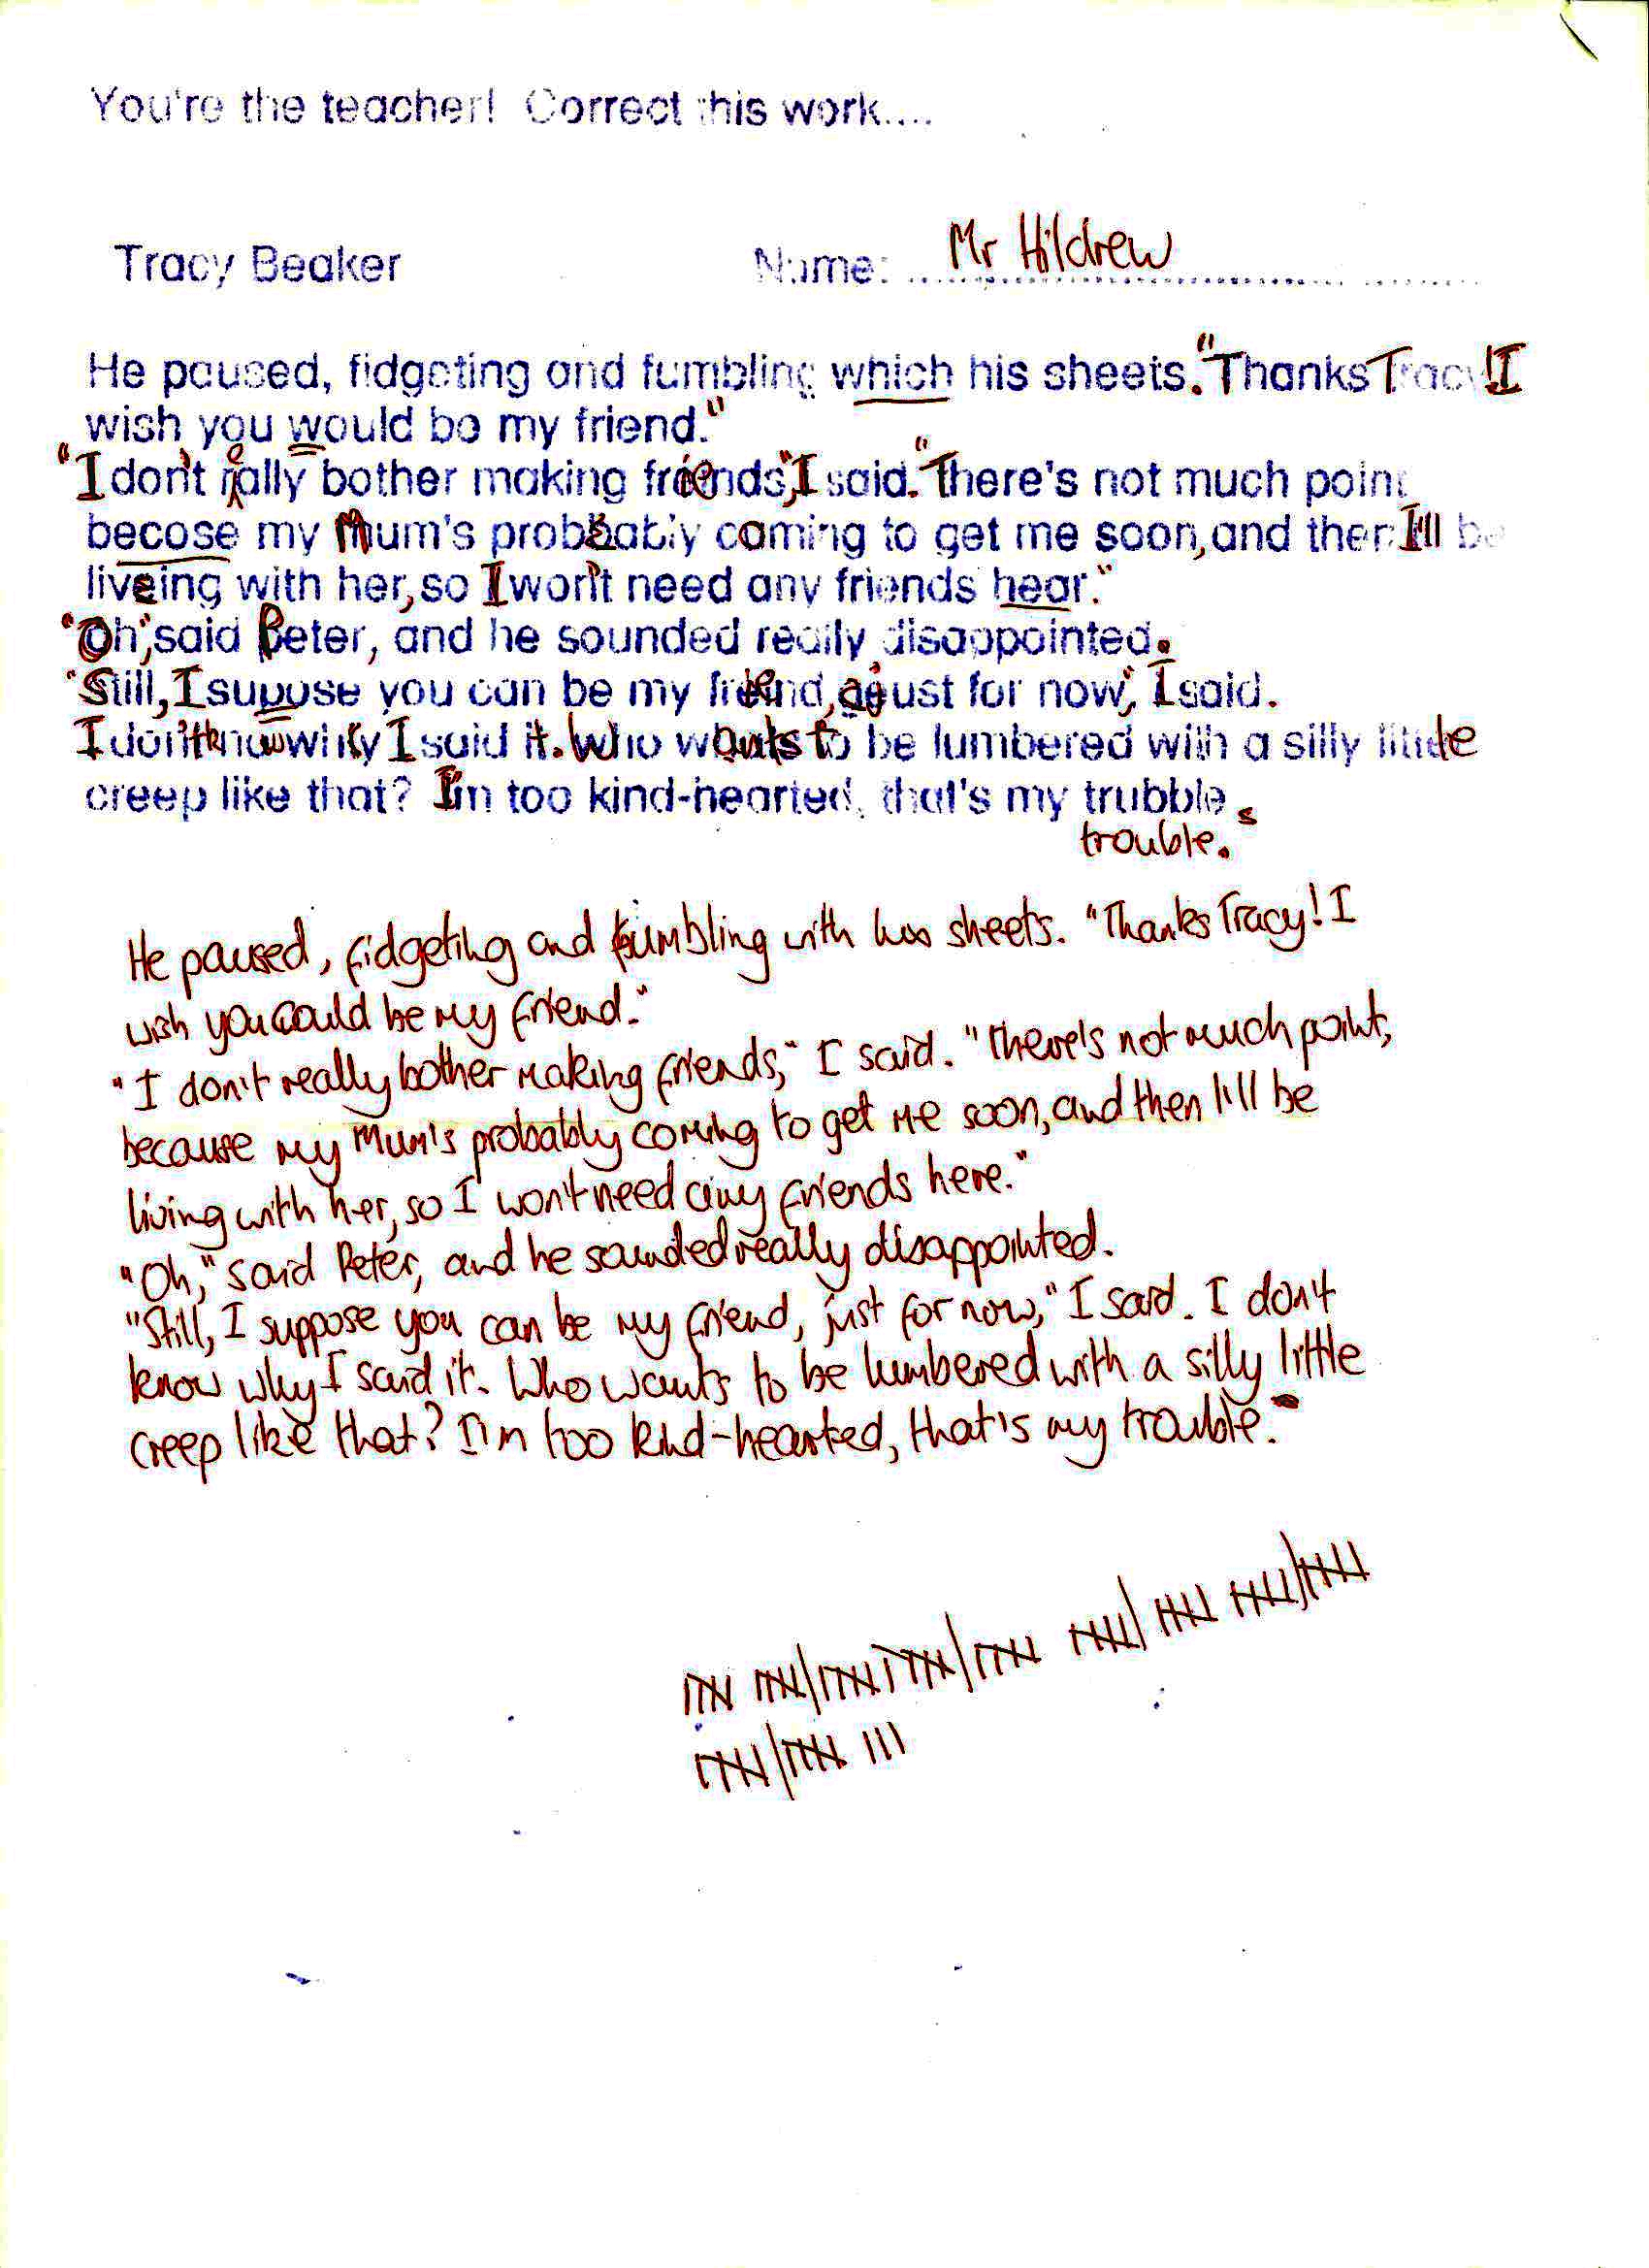 You're the teacher! Correct this work....
Tracy Beaker Name: Mr Hildrew
He paused, fidgeting and fumbling which his sheets. "Thanks Tracy! I
wish you would be my friend."
"I don't really bother making friends," I said. "There's not much point
becose my Mum's probably coming to get me soon, and then I'll be
liveing with her, so I won't need any friends hear."
"Oh," said Peter, and he sounded really disappointed.
"Still, I supose you can be my friend, just for now," I said.
I don't know why I said it. Who wants to be lumbered with a silly little
creep like that? I'm too kind-hearted, that's my trubble.
trouble."
He paused, fidgeting and fumbling with his sheets. "Thanks Tracy! I
wish you could be my friend."
"I don't really bother making friends," I said. "There's not much point,
because my Mum's probably coming to get me soon, and then I'll be
living with her, so I won't need any friends here."
"Oh," said Peter, and he sounded really disappointed.
"Still, I suppose you can be my friend, just for now," I said. I don't
know why I said it. Who wants to be lumbered with a silly little
creep like that? I'm too kind-hearted, that's my trouble.